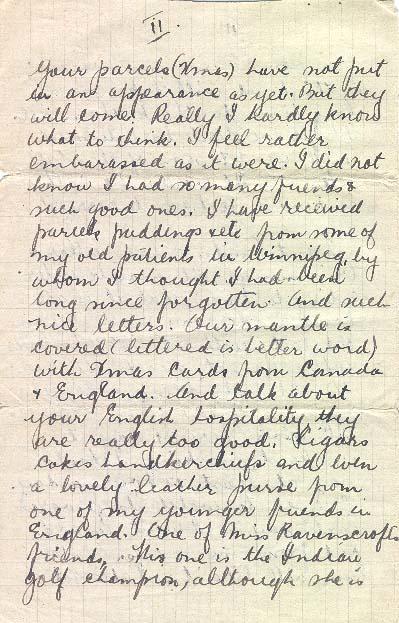 II.
Your parcels (Xmas) have not put
in an appearance as yet. But they
will come. Really I hardly know
what to think. I feel rather
embarassed as it were. I did not
know I had so many friends &
such good ones. I have received
parcels puddings & etc from some of
my old patients in Winnipeg, by
whom I thought I had been
long since forgotten. And such
nice letters. Our mantle is
covered (littered is better word)
with Xmas cards from Canada
& England. And talk about
your English hospitality they
are really too good. Cigars
cakes handkerchiefs and even
a lovely leather purse from
one of my younger friends in
England. One of Miss Ravenscrofts
friends. This one is the Indian
golf champion, although she is